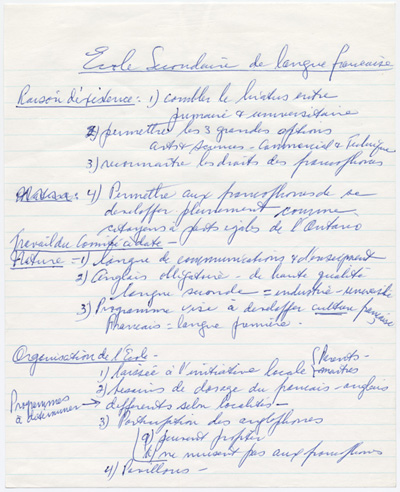 École Secondaire de langue française
Raison d'existence : 1) combler le hiatus entre
primaire & universitaire
2) permettre les 3 grandes options
arts & sciences - Commercial & Technique
3) reconnaître les droits des francophones
4) Permettre aux francophones de se
développer pleinement comme
citoyens à parts égales de l'Ontario
Travail du Comité à date -
Nature - 1) langue de communications & d'enseignement
2) Anglais obligatoire - de haute qualité
langue seconde = industrie - université
3) Programme vise à développer culture française
Francais - langue première -
Organisation de l'École -
1) laissée à l'initiative locale { Parents -
maîtres
2) besoins de dosage du français - anglais
Programmes à déterminer → différents selon localités -
3) Participation des anglophones
a) peuvent profiter
b) ne nuisent pas aux francophones
4) Pavillons -